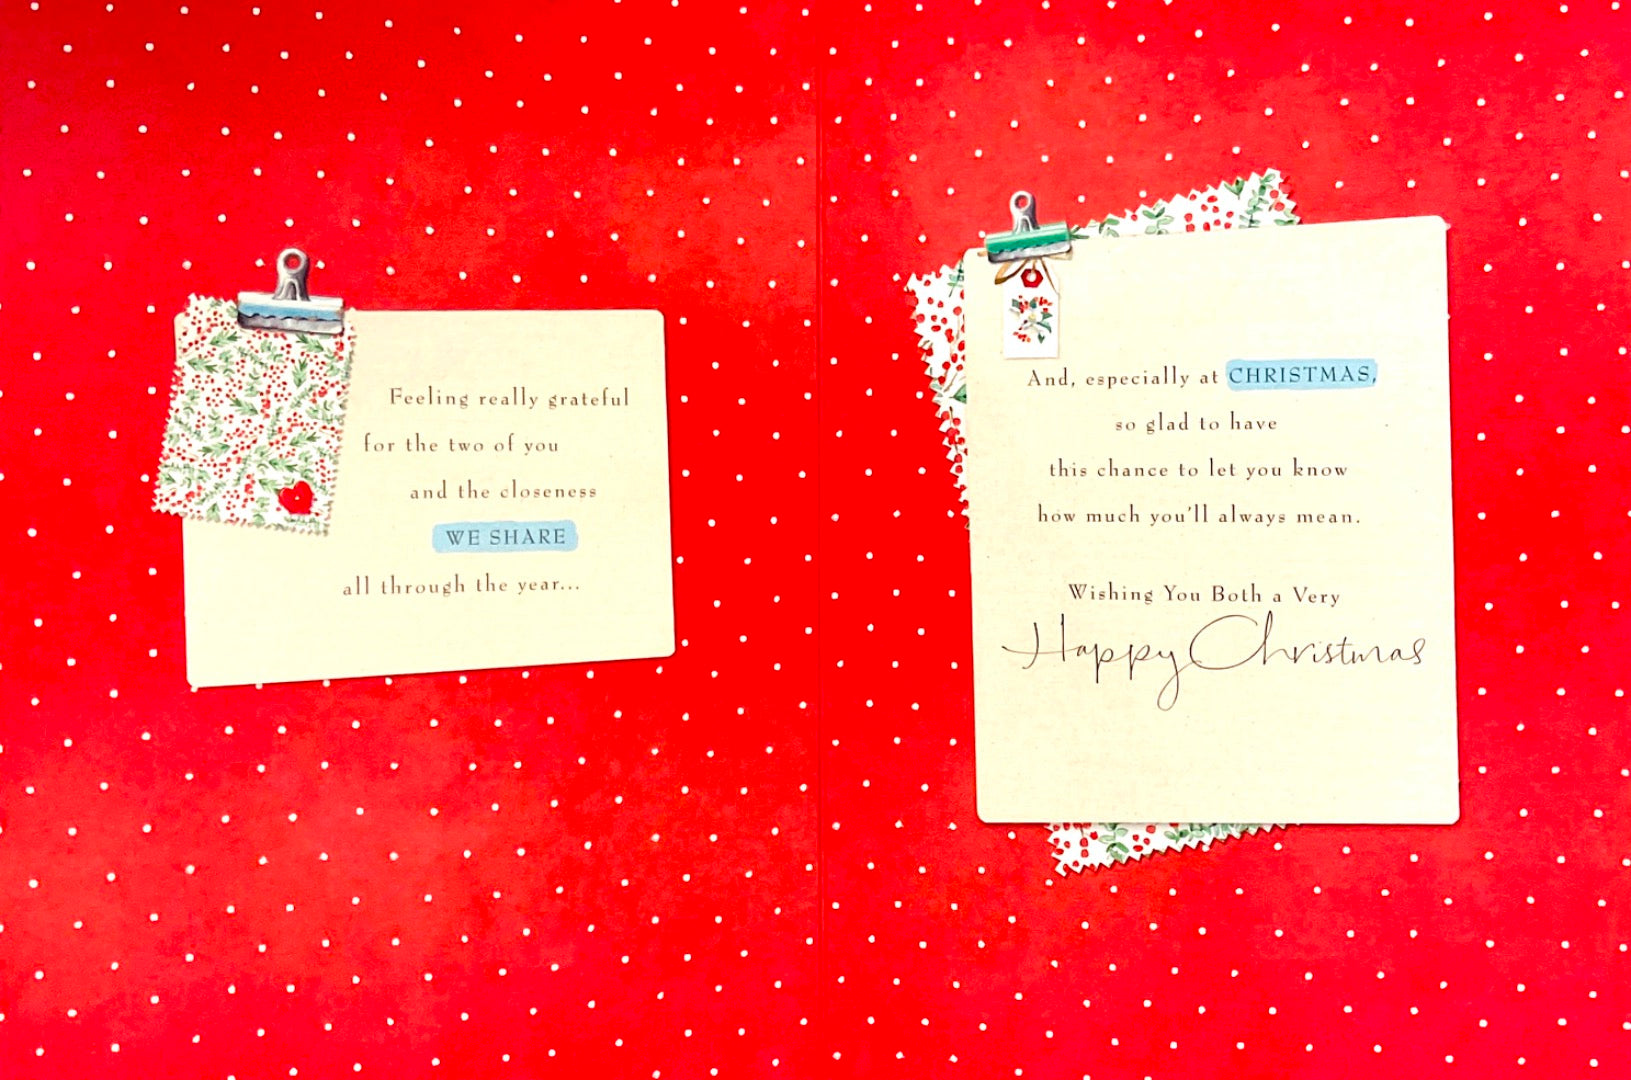 Feeling really grateful
for the two of you
and the closeness
WE SHARE
all through the year...
And, especially at CHRISTMAS,
so glad to have
this chance to let you know
how much you'll always mean.
Wishing You Both a Very
Happy Christmas